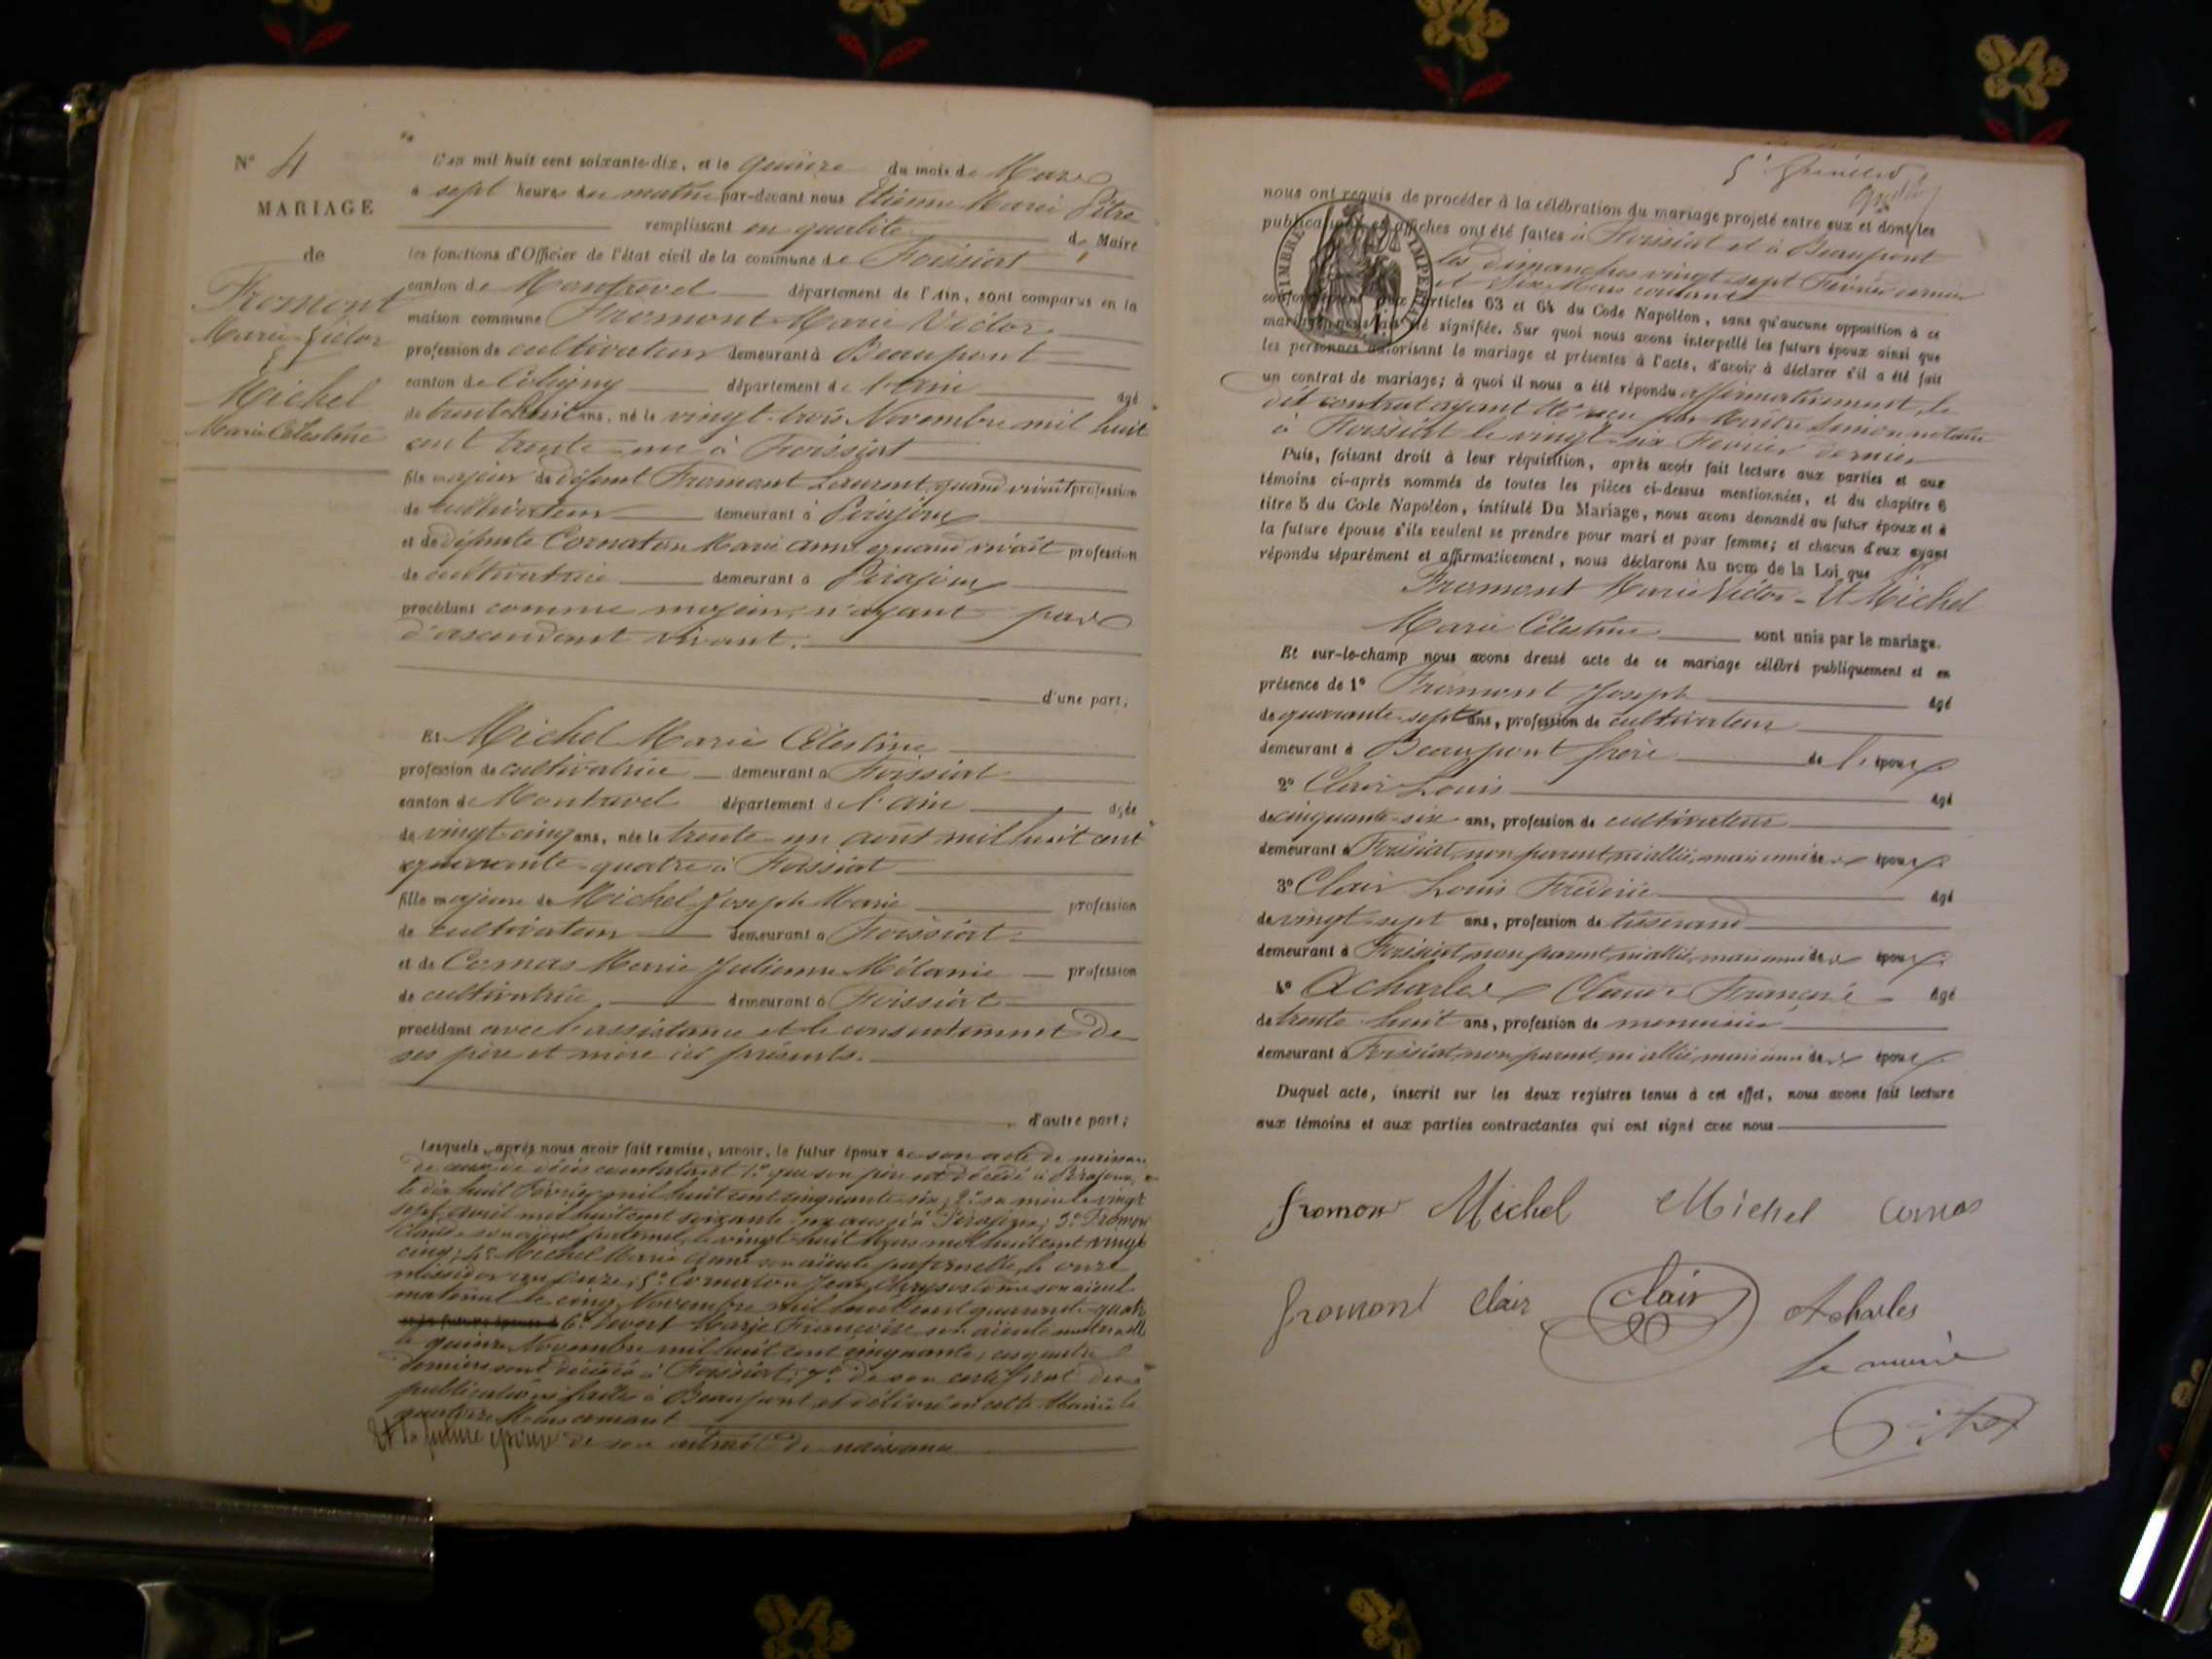 N° 4
MARIAGE
de
Fromont
Marie-Victor
&
Michel
Marie Célestine
L'an mil huit cent soixante-dix, et le quinze du mois de Mars
à sept heures du matin par-devant nous Etienne Marie Pitre
remplissant en qualité de Maire
les fonctions d'Officier de l'état civil de la commune de Foissiat
canton de Montrevel département de l'Ain, sont comparus en la
maison commune Fromont Marie Victor
profession de cultivateur demeurant à Beaupont
canton de Coligny département de l'ain agé
de trente huit ans, né le vingt-trois Novembre mil huit
cent trente-un à Foissiat
fils majeur de défunt Fromont Laurent, quand vivait profession
de cultivateur demeurant à Pirajoux
et de défunte Cornaton Marie anne quand vivait profession
de cultivatrice demeurant à Pirajoux
procédant comme majeur, n'ayant pas
d'ascendant vivant.
d'une part,
Et Michel Marie Célestine
profession de cultivatrice demeurant à Foissiat
canton de Montrevel département de l'ain agée
de vingt-cinq ans, née le trente-un août mil huit cent
quarante-quatre à Foissiat
fille majeure de Michel Joseph Marie profession
de cultivateur demeurant à Foissiat
et de Cornas Marie Julienne Mélanie profession
de cultivatrice demeurant à Foissiat
procédant avec l'assistance et le consentement de
ses père et mère ici présents.
d'autre part;
Lesquels, après nous avoir fait remise, savoir, le futur époux de son acte de naissance
de ceux de décès constatant 1° que son père est décédé à Pirajoux,
le dix huit Février mil huit cent cinquante-six; 2° sa mère le vingt
sept avril mil huit cent soixante aussi à Pirajoux; 3° Fromont
Claude son aïeul paternel, le vingt-huit Mars mil huit cent vingt
cinq; 4° Michel Marie Anne son aïeule paternelle, le onze
messidor an onze; 5° Cornaton Jean Chrysostome son aïeul
maternel le cinq Novembre mil huit cent quarante-quatre
6° Marie Françoise son aïeule maternelle
le quinze Novembre mil huit cent cinquante, ces quatre
derniers sont décédés à Foissiat; 7° de son certificat de
publications faites à Beaupont et délivré en cette Mairie le
quatorze Mars courant
Et la future épouse de son extrait de naissance
nous ont requis de procéder à la célébration du mariage projeté entre eux et dont les
publications et affiches ont été faites à Foissiat et à Beaupont
les dimanches vingt-sept Février dernier
et six Mars courant
TIMBRE IMPERIAL
conformément aux articles 63 et 64 du Code Napoléon, sans qu'aucune opposition à ce
mariage nous ait été signifiée. Sur quoi nous avons interpellé les futurs époux ainsi que
les personnes autorisant le mariage et présentes à l'acte, d'avoir à déclarer s'il a été fait
un contrat de mariage; à quoi il nous a été répondu affirmativement, le
dit contrat ayant été reçu par Maître Simon notaire
à Foissiat le vingt-six Fevrier dernier
Puis, faisant droit à leur réquisition, après avoir fait lecture aux parties et aux
témoins ci-après nommés de toutes les pièces ci-dessus mentionnées, et du chapitre 6
titre 5 du Code Napoléon, intitulé Du Mariage, nous avons demandé au futur époux et à
la future épouse s'ils veulent se prendre pour mari et pour femme; et chacun d'eux ayant
répondu séparément et affirmativement, nous déclarons Au nom de la Loi que
Fromont Marie Victor - Et Michel
Marie Célestine sont unis par le mariage.
Et sur-le-champ nous avons dressé acte de ce mariage célébré publiquement et en
présence de 1° Fromont Joseph agé
de quarante-sept ans, profession de cultivateur
demeurant à Beaupont frère de l'époux
2° Clair Louis agé
de cinquante-six ans, profession de cultivateur
demeurant à Foissiat, non parent, ni allié, mais ami des époux
3° Clair Louis Fréderic agé
de vingt-sept ans, profession de tisserand
demeurant à Foissiat, non parent, ni allié, mais ami des époux
4° Acharles Claude François agé
de trente huit ans, profession de menuisier
demeurant à Foissiat, non parent, ni allié, mais ami des époux
Duquel acte, inscrit sur les deux registres tenus à cet effet, nous avons fait lecture
aux témoins et aux parties contractantes qui ont signé avec nous
fromon Michel Michel Cornas
fromont Clair Clair Acharles
Le maire
Pitre